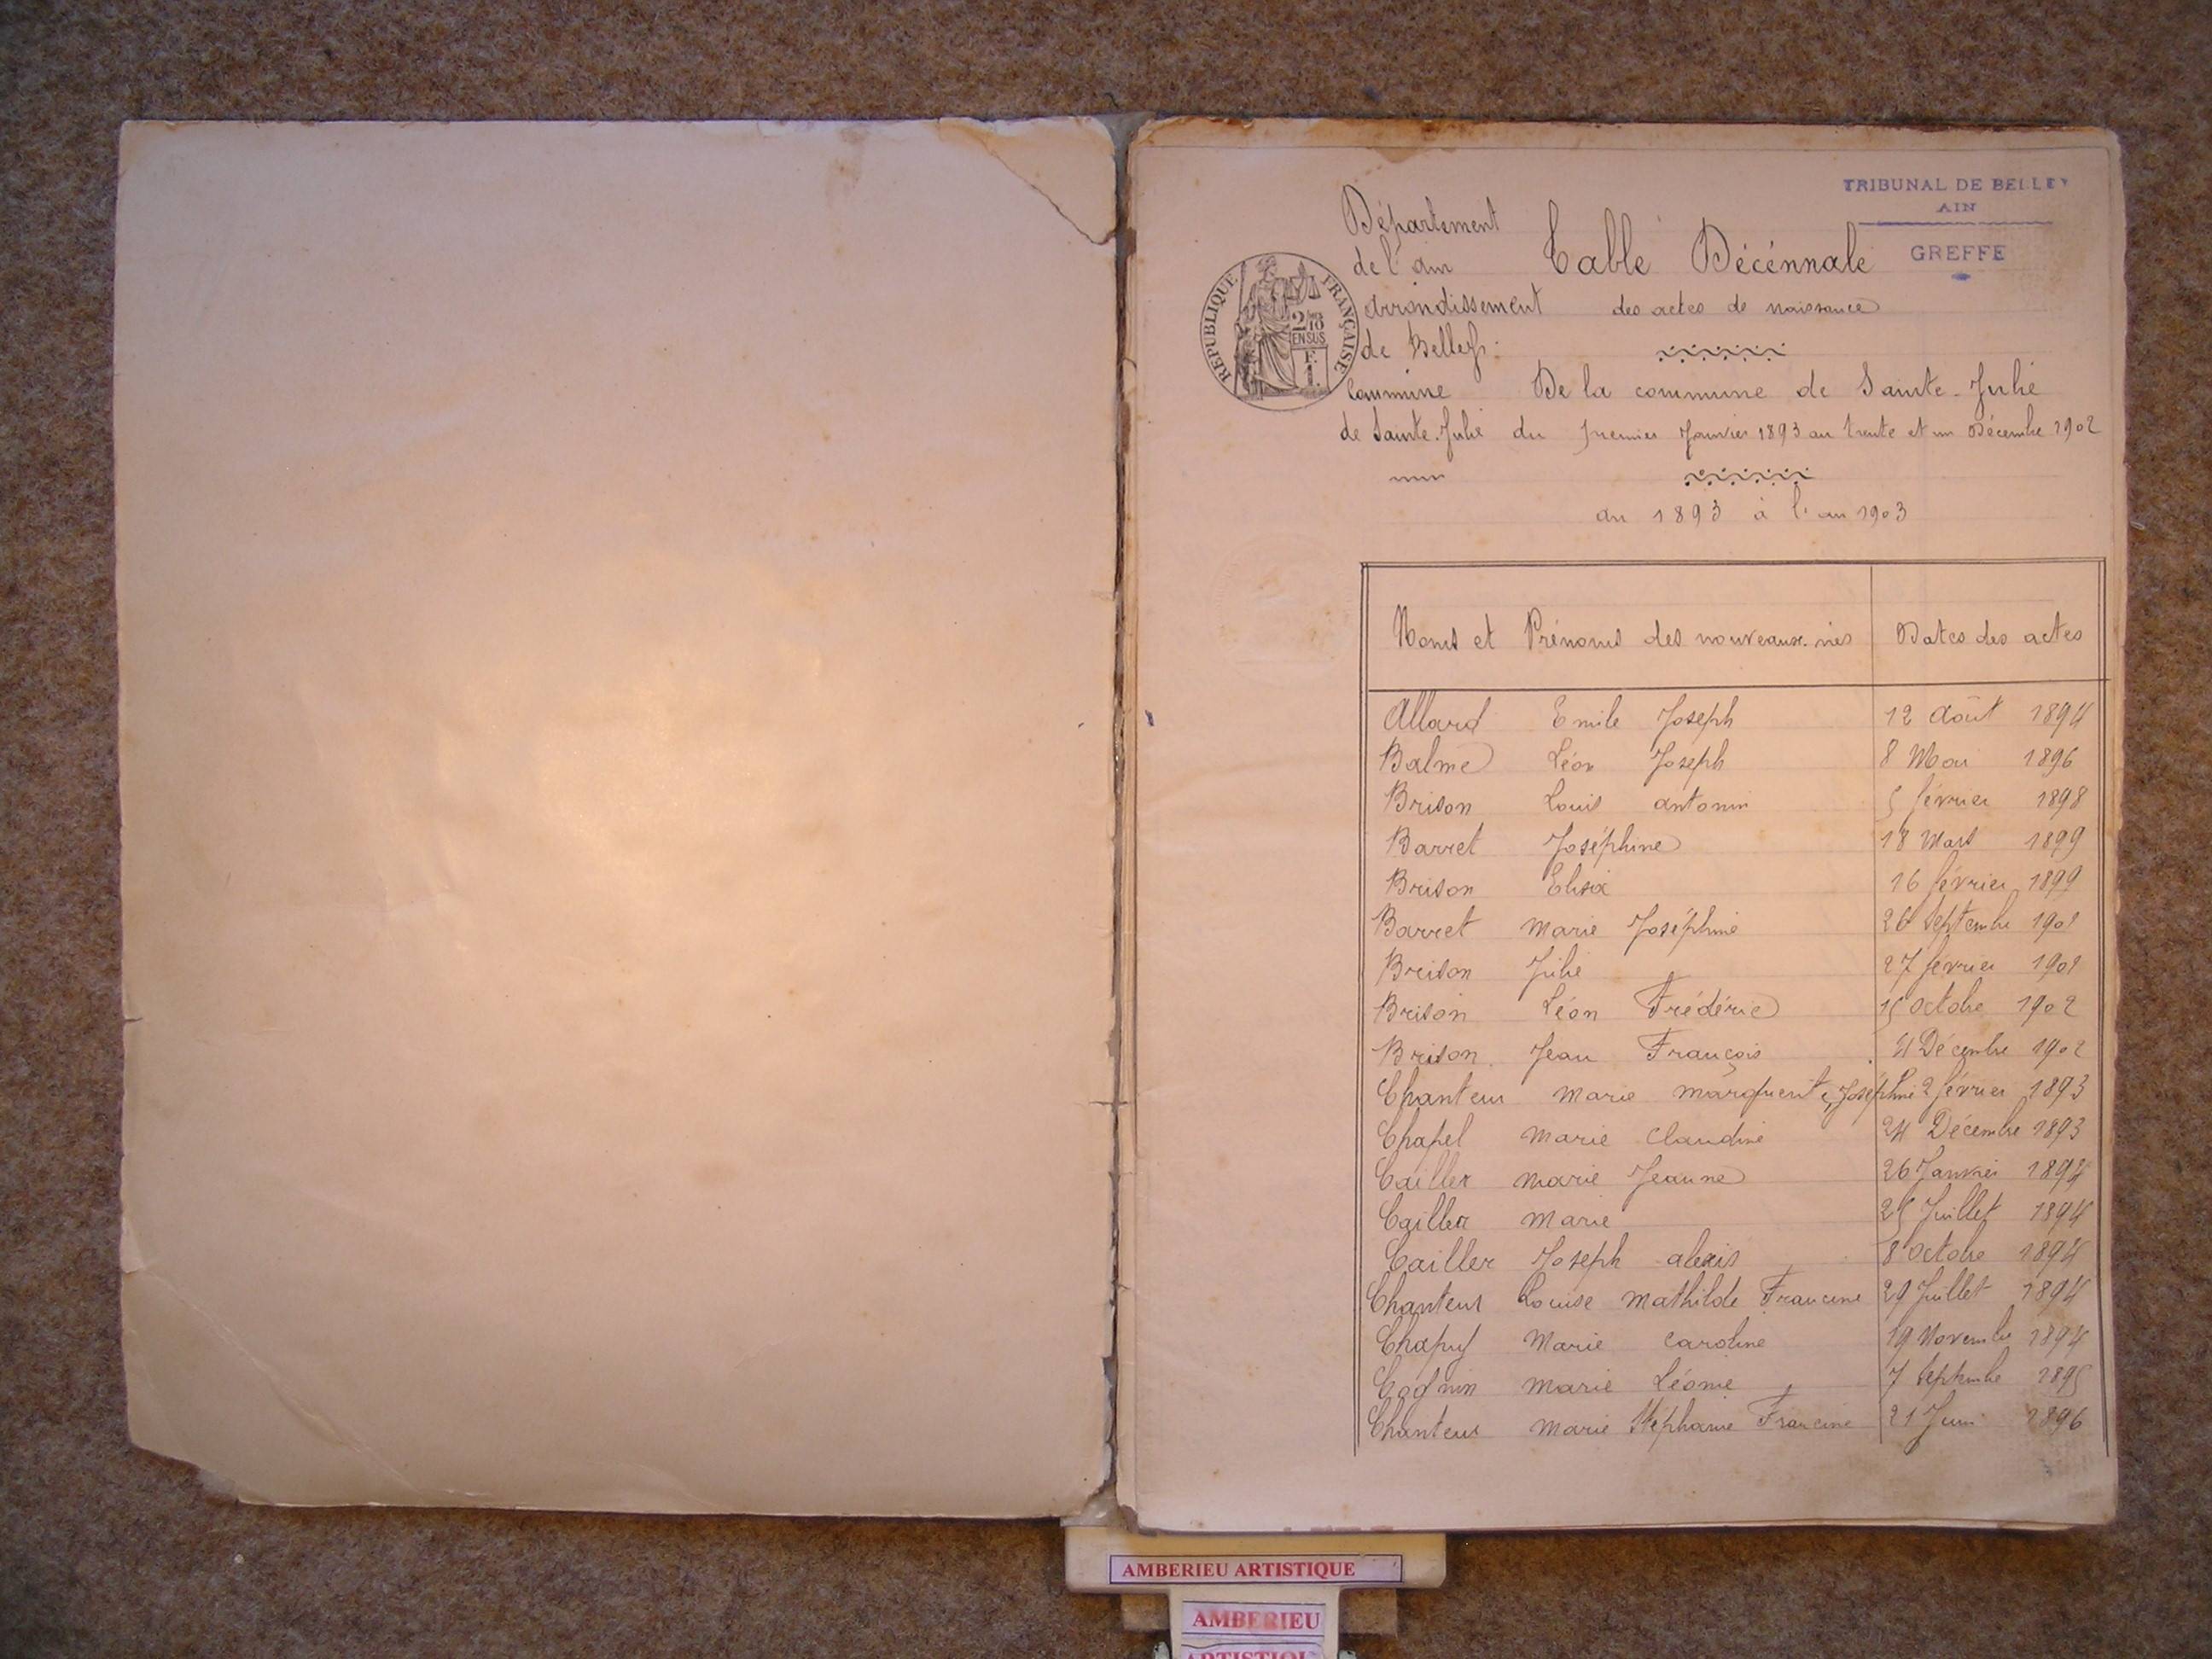 TRIBUNAL DE BELLEY
AIN
GREFFE
Département
de l'Ain
Table Décénnale
arrondissement
des actes de naissance
de Belley
RÉPUBLIQUE FRANÇAISE
2/10
EN SUS
F.
1.
Commune
De la commune de Sainte-Julie
de Sainte-Julie du premier Janvier 1893 au trente et un Décembre 1902
an 1893 à l'an 1903
Noms et Prénoms des nouveaux-nés Dates des actes
Allard Emile Joseph 12 Août 1894
Balme Léon Joseph 8 Mai 1896
Brison Louis antonin 5 février 1898
Barret Joséphine 18 Mars 1899
Brison Elisa 16 février 1899
Barret Marie Joséphine 26 Septembre 1901
Brison Julie 27 février 1901
Brison Léon Frédéric 15 Octobre 1902
Brison Jean François 4 Décembre 1902
Chanteur Marie marguerite Joséphine 2 février 1893
Chapel Marie Claudine 24 Décembre 1893
Cailler Marie Jeanne 26 Janvier 1894
Cailler Marie 25 Juillet 1894
Cailler Joseph alexis 8 Octobre 1894
Chanteur Louise Mathilde Francine 29 Juillet 1894
Chapuy Marie Caroline 19 Novembre 1894
Cognin Marie Léonie 7 Septembre 1895
Chanteur Marie Stéphanie Francine 21 Juin 1896
AMBERIEU ARTISTIQUE
AMBERIEU